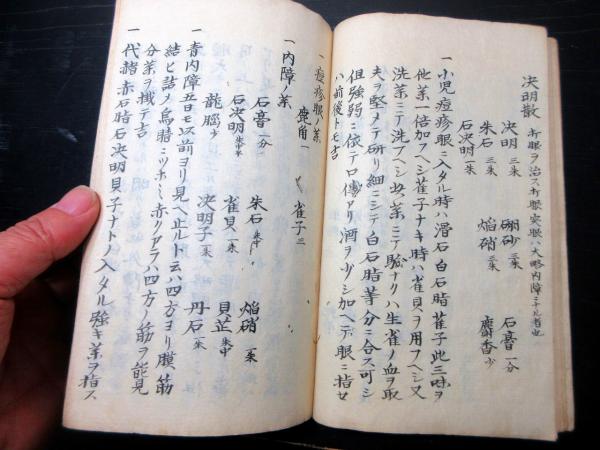 決明散 打眼ヲ治ス打眼突眼ハ大略内障ミナル者也
決明 三朱 硼砂 三朱 石膏 一分
朱石 三朱 焔硝 三朱 麝香 少
石決明 一朱
一 小児痘疹眼ニ入タル時ハ滑石白石脂雀子此三味ヲ
他薬一倍加フヘシ雀子ナキ時ハ雀貝ヲ用フヘシ又
洗薬ニテ洗フヘシ如薬ニテ ナリハ生雀ノ血ヲ取
夫ヲ堅メテ研リ細ニシテ白石脂等分ニ合ス可シ
但強弱ニ依テロ傳アリ酒ヲ少シ加ヘテ眼ニ指セ
ハ前後トモ吉
一 痘疹眼ノ薬
鹿角 一 雀子 三
一 内障ノ薬
石膏 一分 朱石 朱中 焔硝 一朱
石決明 雀貝 一朱 貝芷 朱中
龍脳 少 決明子 一朱 丹石 一朱
一 青内障五日モ以前ヨリ見ヘ止ルト云ハ四方ヨリ膜筋
結ヒ詰メ烏睛ニツホミ赤クアラハ四方ノ筋ヲ能見
分薬ヲ 指テ吉
一 代赭赤石脂石決明貝子ナトノ入タル強キ薬ヲ指ス